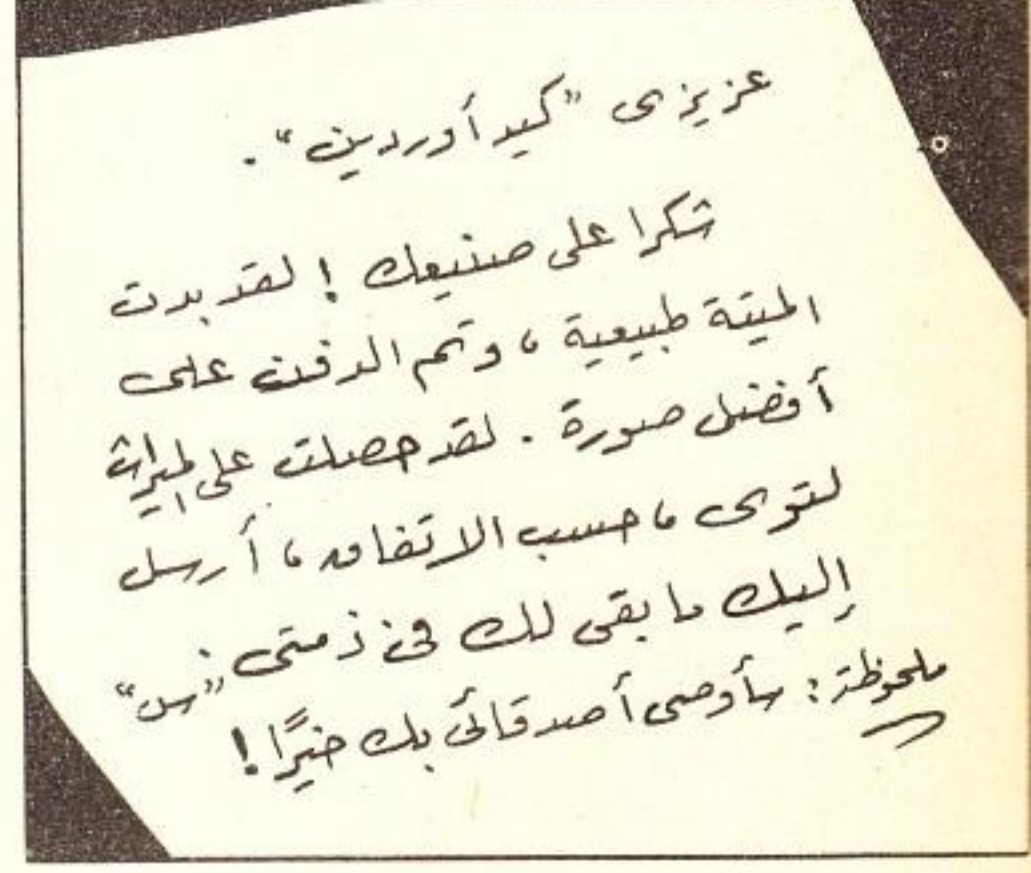 عزيزى "كيد أوردين".
شكرا على صنيعك ! لقد بدت
الميتة طبيعية ، وتم الدفن على
أفضل صورة . لقد حصلت على الميراث
لتوى ، حسب الاتفاق ، أرسل
إليك ما بقى لك فى ذمتى .
"س"
ملحوظة : سأوصى أصدقائى بك خيرًا !